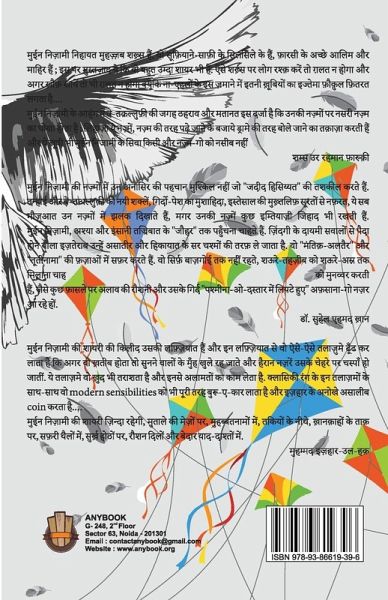 मुईन निज़ामी निहायत मुहज़्ज़ब शख़्स हैं, वो सूफ़ियाने-साफ़ी के सिलसिले के हैं, फ़ारसी के अच्छे आलिम और
माहिर हैं; इस पर मुस्तज़ाद ये कि वो बहुत उम्दा शायर भी हैं. ऐसे शख़्स पर लोग रश्क करें तो ग़लत न होगा और
अगर के ज़माने में इतनी ख़ूबियों का इज्तेमा फ़ौक़ुल फ़ितरत
लगता है...
मुईन निज़ामी के की जगह ठहराव और मतानत इस दर्जा है कि उनकी नज़्मों पर नसरी नज़्म
का नज़्म की तरह पढ़े जाने के बजाये ड्रामे की तरह बोले जाने का तक़ाज़ा करती हैं
और मुईन निज़ामी के सिवा किसी और नज़्म-गो को नसीब नहीं
शम्स उर रहमान फ़ारूक़ी
मुईन निज़ामी की नज़्मों में उन अनासिर की पहचान मुश्किल नहीं जो "जदीद हिस्सियत" की तशकील करते हैं.
की नयी शक्लें, गिर्दो-पेश का मुशाहिदा, इस्तेसाल की मुख़्तलिफ़ सूरतों से नफ़रत, ये सब
मौज़ूआत उन नज़्मों में झलक दिखाते हैं, मगर उनकी नज़्में कुछ इम्तियाज़ी जिहात भी रखती हैं.
मुईन निज़ामी, अश्या और इंसानी तज्रिबात के "जौहर" तक पहुँचना चाहते हैं. ज़िंदगी के दायमी सवालों से पैदा
होने वाला इज़तेराब उन्हें असातीर और हिकायात के सर चश्मों की तरफ़ ले जाता है. वो "मंतिक़-अलतैर" और
"तूतीनामा" की फ़ज़ाओं में सफ़र करते हैं. वो सिर्फ़ बाज़गोई तक नहीं रहते, शजरे-तहज़ीब को शजरे-अस्ल तक
मिलाना चाह को मुनव्वर करती
हैं, जैसे कुछ फ़ासले पर अलाव की रौशनी और उसके गिर्द "पश्मीना-ओ-दस्तार में लिपटे हुए" अफ़साना-गो नज़र
आ रहे हों.
डॉ. सुहेल अहमद ख़ान
मुईन निज़ामी की शायरी की किलीद उसकी लफ़्ज़ियात हैं और इन लफ़्ज़ियात से वो ऐसे-ऐसे तलाज़मे ढूँढ कर
लाता है कि अगर वो ख़तीब होता तो सुनने वालों के मुँह खुले रह जाते और हैरान नज़रें उसके चेहरे पर चस्पाँ हो
जातीं. ये तलाज़मे वो ख़ुद भी तराशता है और इनसे अलामतों का काम लेता है. क्लासिकी रंग के इन तलाज़मों के
साथ-साथ वो modern sensibilities को भी पूरी तरह बरू-ए-कार लाता है और इज़हार के अनोखे असालीब
coin करता है...
मुईन निज़ामी की शायरी ज़िन्दा रहेगी, मुताले की मेज़ों पर, मुहब्बतनामों में, तकियों के नीचे, ख़ानक़ाहों के ताक़
पर, सफ़री थैलों में, सुर्ख़ होंटों पर, रौशन दिलों और बेदार याद-दाश्तों में.
मुहम्मद इज़हार-उल-हक़
ANYBOOK
G- 248, 2nd Floor
Sector 63, Noida - 201301
Email : contactanybook@gmail.com
Website : www.anybook.org
ISBN 978-93-86619-39-6